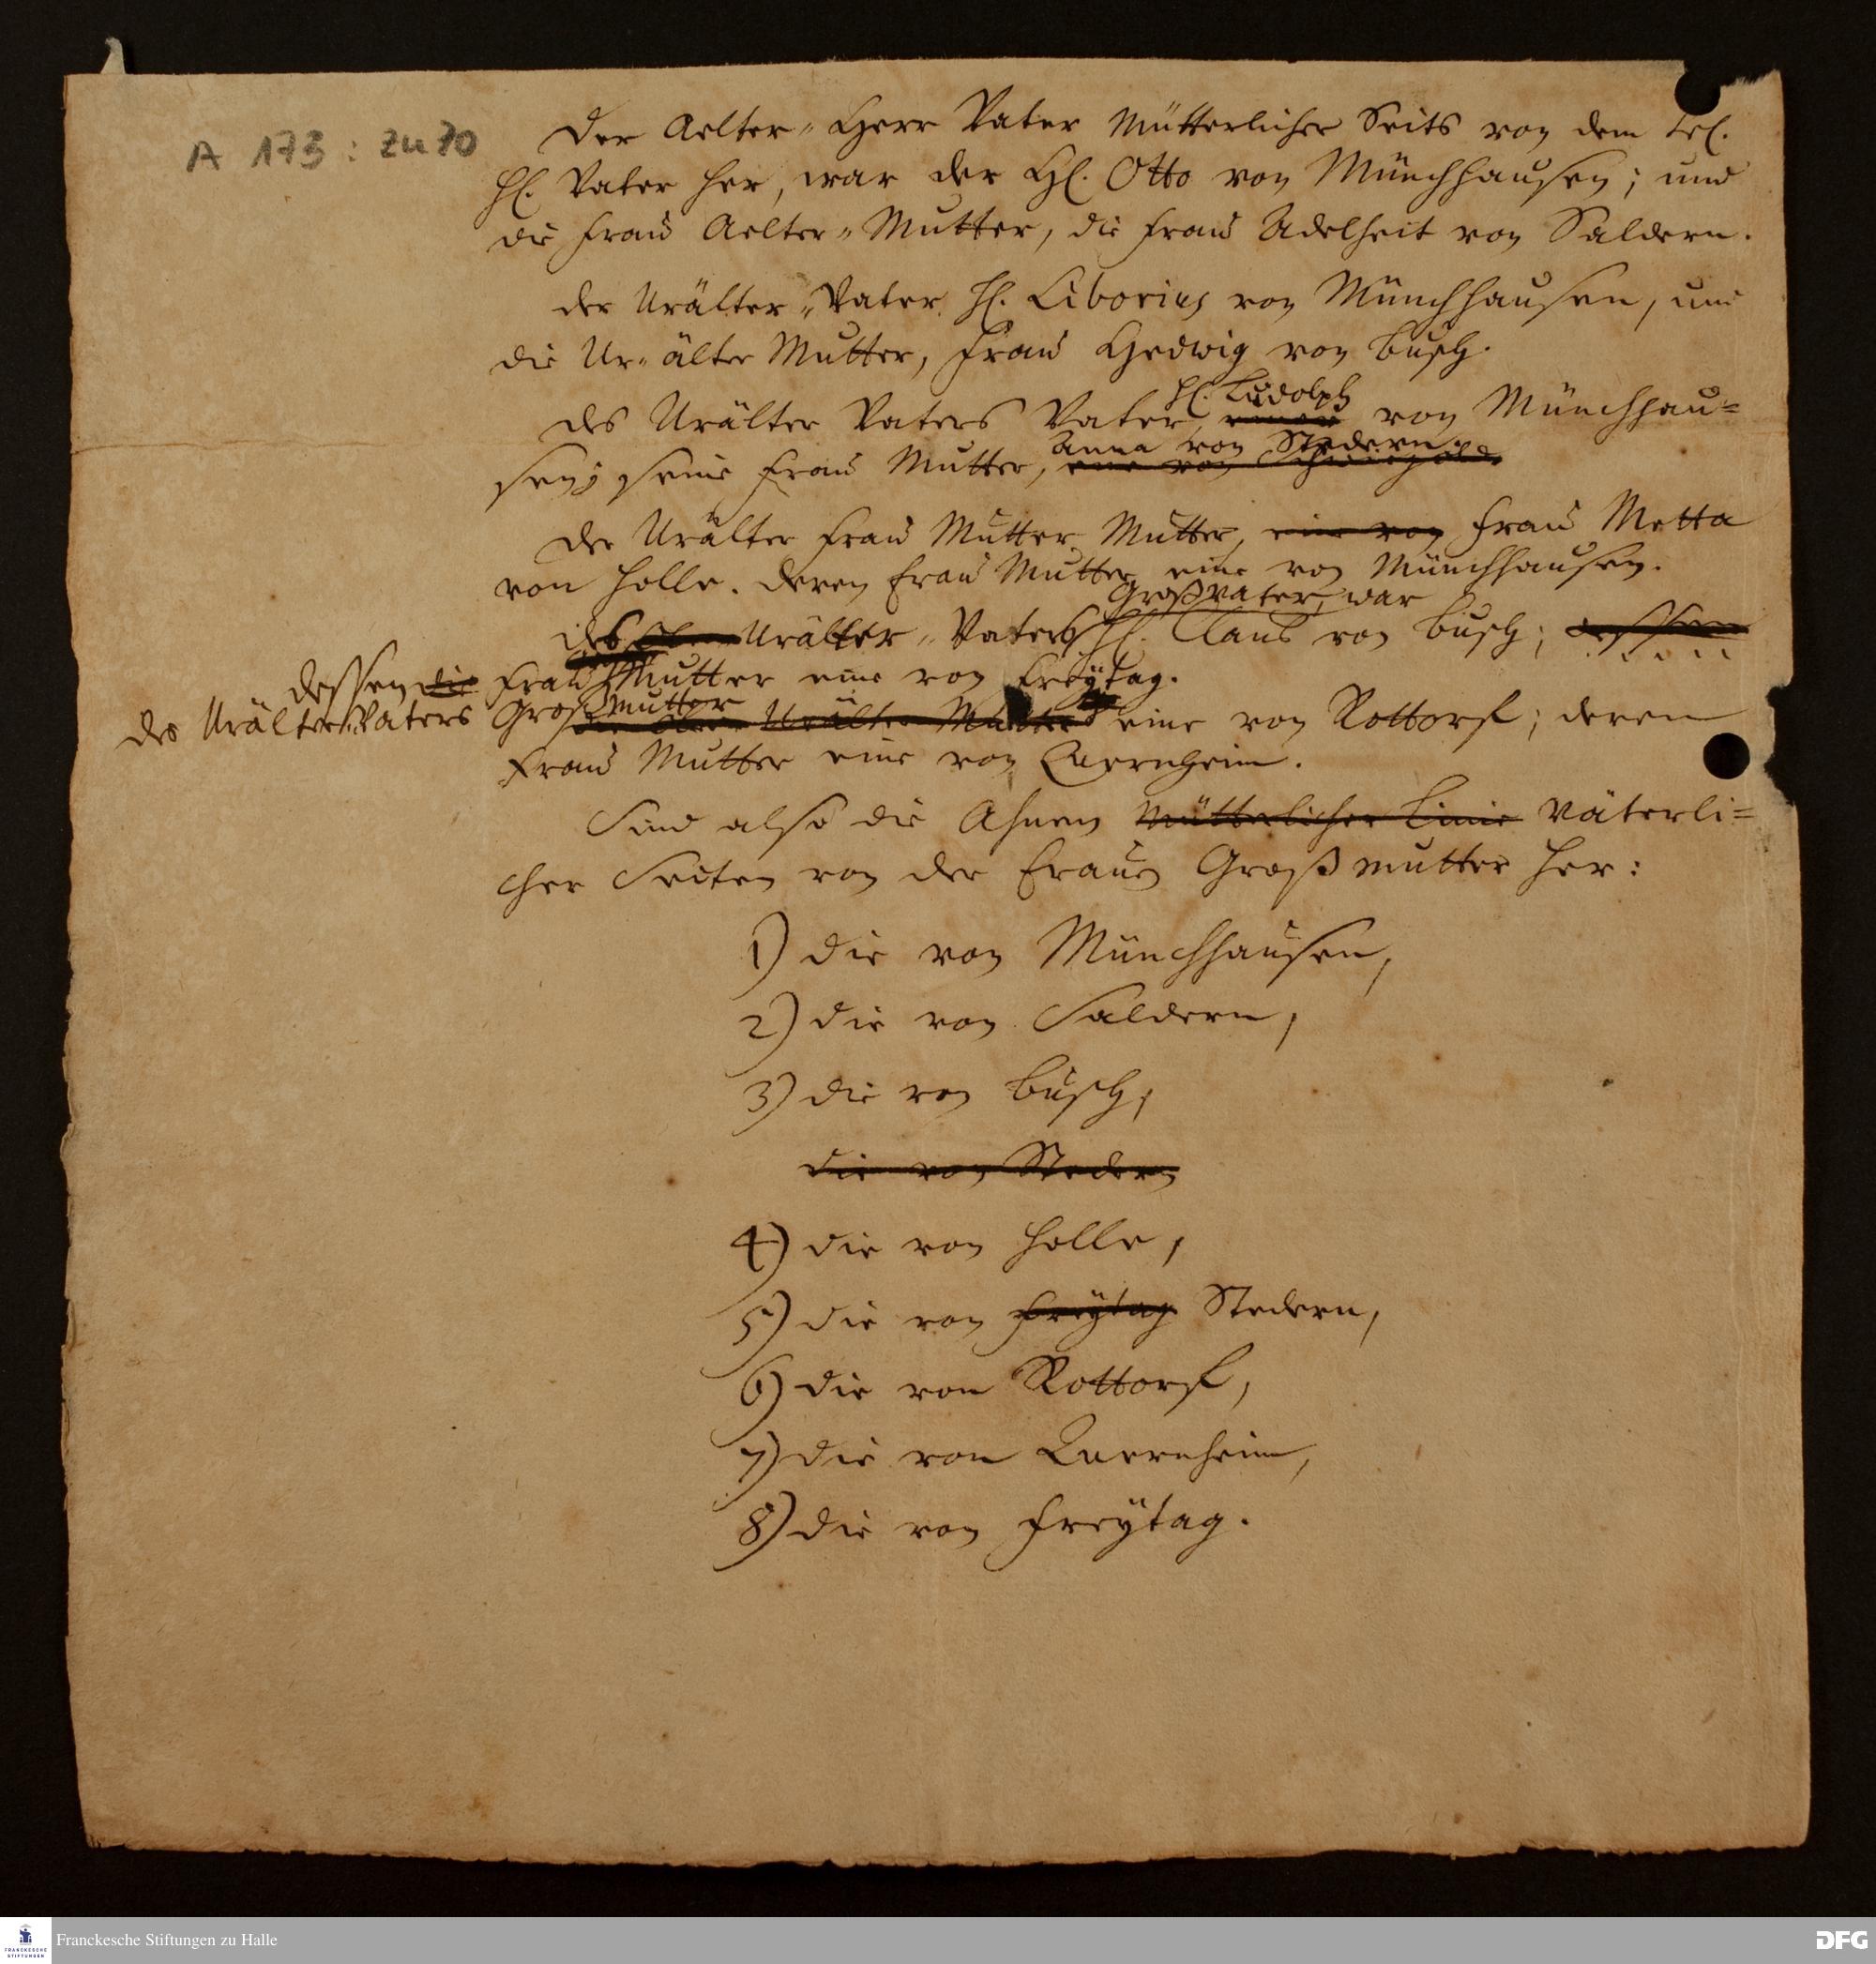 A 173 : zu 70
Der Aelter- Herr Vater Mütterlicher Seits von dem sel.
H. Vater her, war der H. Otto von Münchhausen; und
die Frau Aelter-Mutter, die Frau Adelheit von Saldern.
der Urälter-Vater H. Liborius von Münchhausen, und
die Ur-älter Mutter, Frau Hedwig von Busch.
H. Ludolph
des Urälter Vaters Vater, von Münchhau=
Anna von Stedern.
sen; seine Frau Mutter, eine von
Der Urälter Frau Mutter Mutter, eine von Frau Metta
von Holle. Deren Frau Mutter eine von Münchhausen.
Großvater, war
des Urälter-Vaters H. Claus von Busch; dessen
dessen die Frau Mutter eine von Freÿtag.
des Urälter Vaters Großmutter eine von Rottorf; deren
Frau Mutter eine von Quernheim.
Sind also die Ahnen Mütterlicher Linie Väterli=
cher Seiten von der Frau Großmutter her:
1) die von Münchhausen,
2) die von Saldern,
3) die von Busch,
die von Stedern
4) die von Holle,
5) die von Freÿtag Stedern,
6) die von Rottorf,
7) die von Quernheim,
8) die von Freÿtag.
FRANCKESCHE
STIFTUNGEN
Franckesche Stiftungen zu Halle
DFG